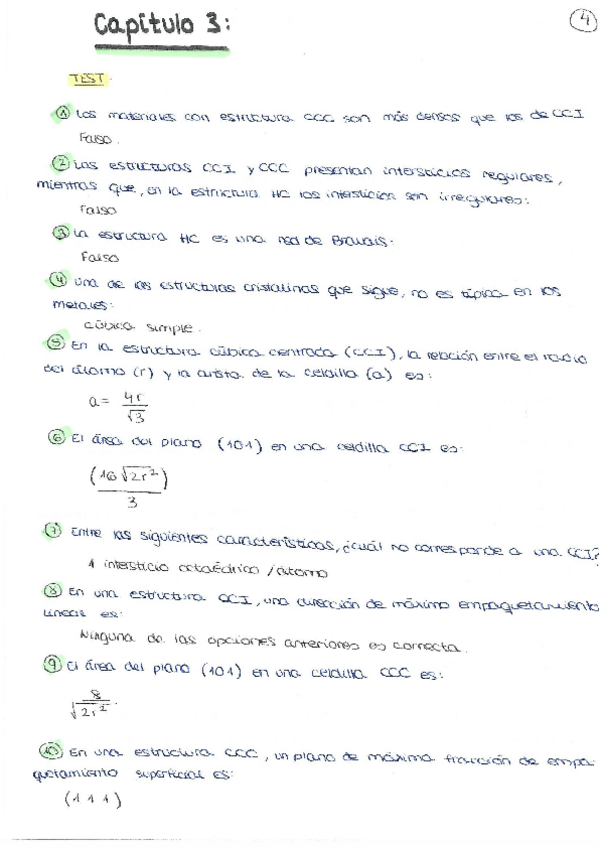 Capítulo 3:
4
TEST.
① Los materiales con estructura CCC son más densos que los de CCI
Falso.
② Las estructuras CCI y CCC presentan intersticios regulares,
mientras que, en la estructura HC los intersticios son irregulares:
Falso
③ La estructura HC es una red de Bravais.
Falso
④ Una de las estructuras cristalinas que sigue, no es típica en los
metales:
cúbica simple.
⑤ En la estructura cúbica centrada (CCI), la relación entre el radio
del átomo (r) y la arista de la celdilla (a) es:
a = 4r/√3
⑥ El área del plano (101) en una celdilla CCI es:
(16√2r²)/3
⑦ Entre las siguientes características, ¿cuál no corresponde a una CCI?
1 intersticio octaédrico/átomo
⑧ En una estructura CCI, una dirección de máximo empaquetamiento
lineal es:
Ninguna de las opciones anteriores es correcta.
⑨ El área del plano (101) en una celdilla CCC es:
8/√2r².
⑩ En una estructura CCC, un plano de máxima fracción de empa
quetamiento superficial es:
(111)